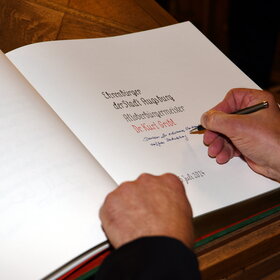 Ehrenbürger
der Stadt Augsburg
Altoberbürgermeister
Dr. Kurt Gribl
Juli 2024